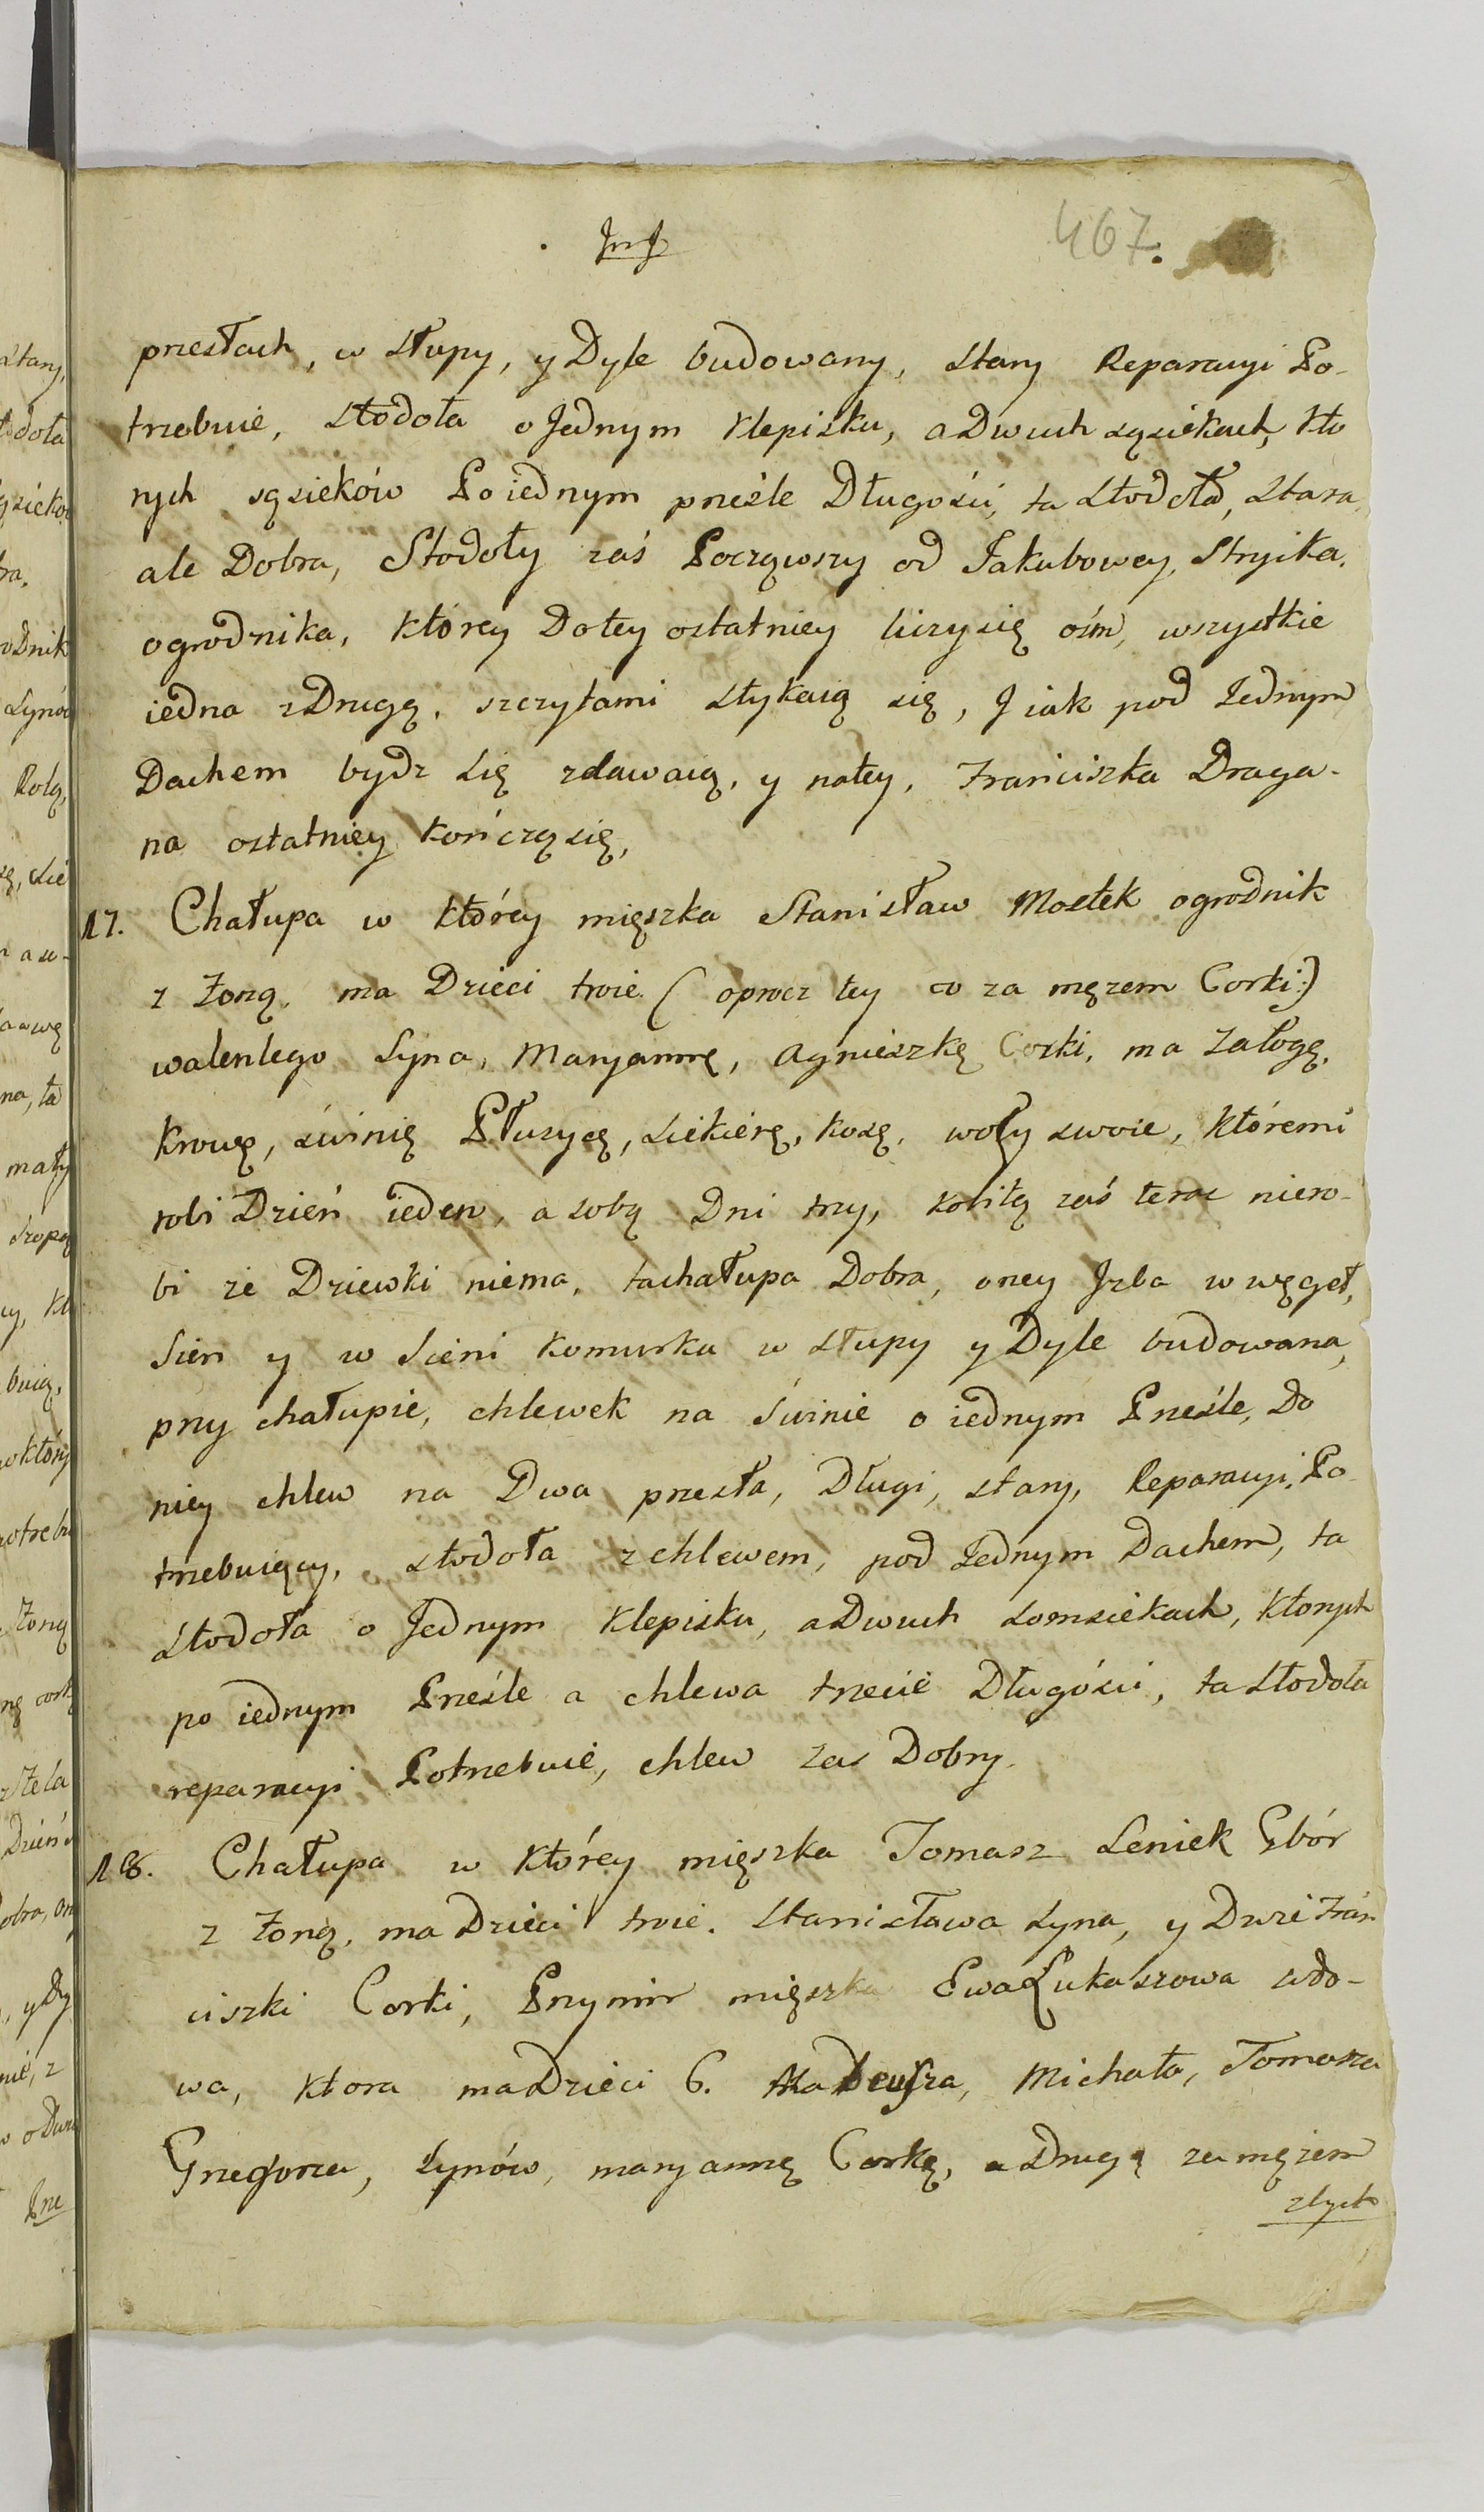 467.
przesłach, w słupy, y Dyle budowany, stary Reparacyi Po-
trzebuie, stodoła o Jednym klepisku, a Dwuch sąsiekach, kto
rych sąsieków Po iednym prześle Długości, ta stodoła, stara,
ale Dobra, Stodoły zaś Począwszy od Jakubowey, Stryika,
ogrodnika, którey Do tey ostatniey liczy się ośm, wszystkie
iedna z Drugą, szczytami stykaią się, J iak pod Jednym
Dachem bydz się zdawaią, y na tey, Franciszka Draga-
na ostatniey kończą się,
17. Chałupa w którey mięszka Stanisław Mostek ogrodnik
z Żoną, ma Dzieci troie. (oprocz tey co za męzem Corki:)
walentego syna, Maryannę, Agnieszkę Corki, ma Załogę,
krowę, świnię Płuzycę, siekierę, kosę, woły swoie, któremi
robi Dzień ieden, a sobą Dni trzy, kobitą zaś teraz niero-
bi że Dziewki niema, ta chałupa Dobra, oney Jzba w węgeł,
Sien y w Sieni komurka w słupy y Dyle budowana,
przy chałupie, chlewek na świnie o iednym Prześle, Do
niey chlew na Dwa przesła, Długi, stary, Reparacyi, Po
trzebuiący, stodoła z chlewem, pod Jednym Dachem, ta
stodoła o Jednym klepisku, a Dwuch somsiekach, ktorych
po iednym Prześle a chlewa trzecie Długości, ta stodoła
reparacyi Potrzebuie, chlew zas Dobry.
18. Chałupa w którey mięszka Tomasz Leniek Gbór
z Żoną, ma Dzieci troie. Stanisława syna, y Dwie Fran
ciszki Corki, Przy nim mięszka Ewa Łukaszowa wdo-
wa, ktora ma Dzieci 6. Madeusza, Michała, Tomasza
Grzegorza, synów, maryannę Corkę, a Drugą za męzem
z tych